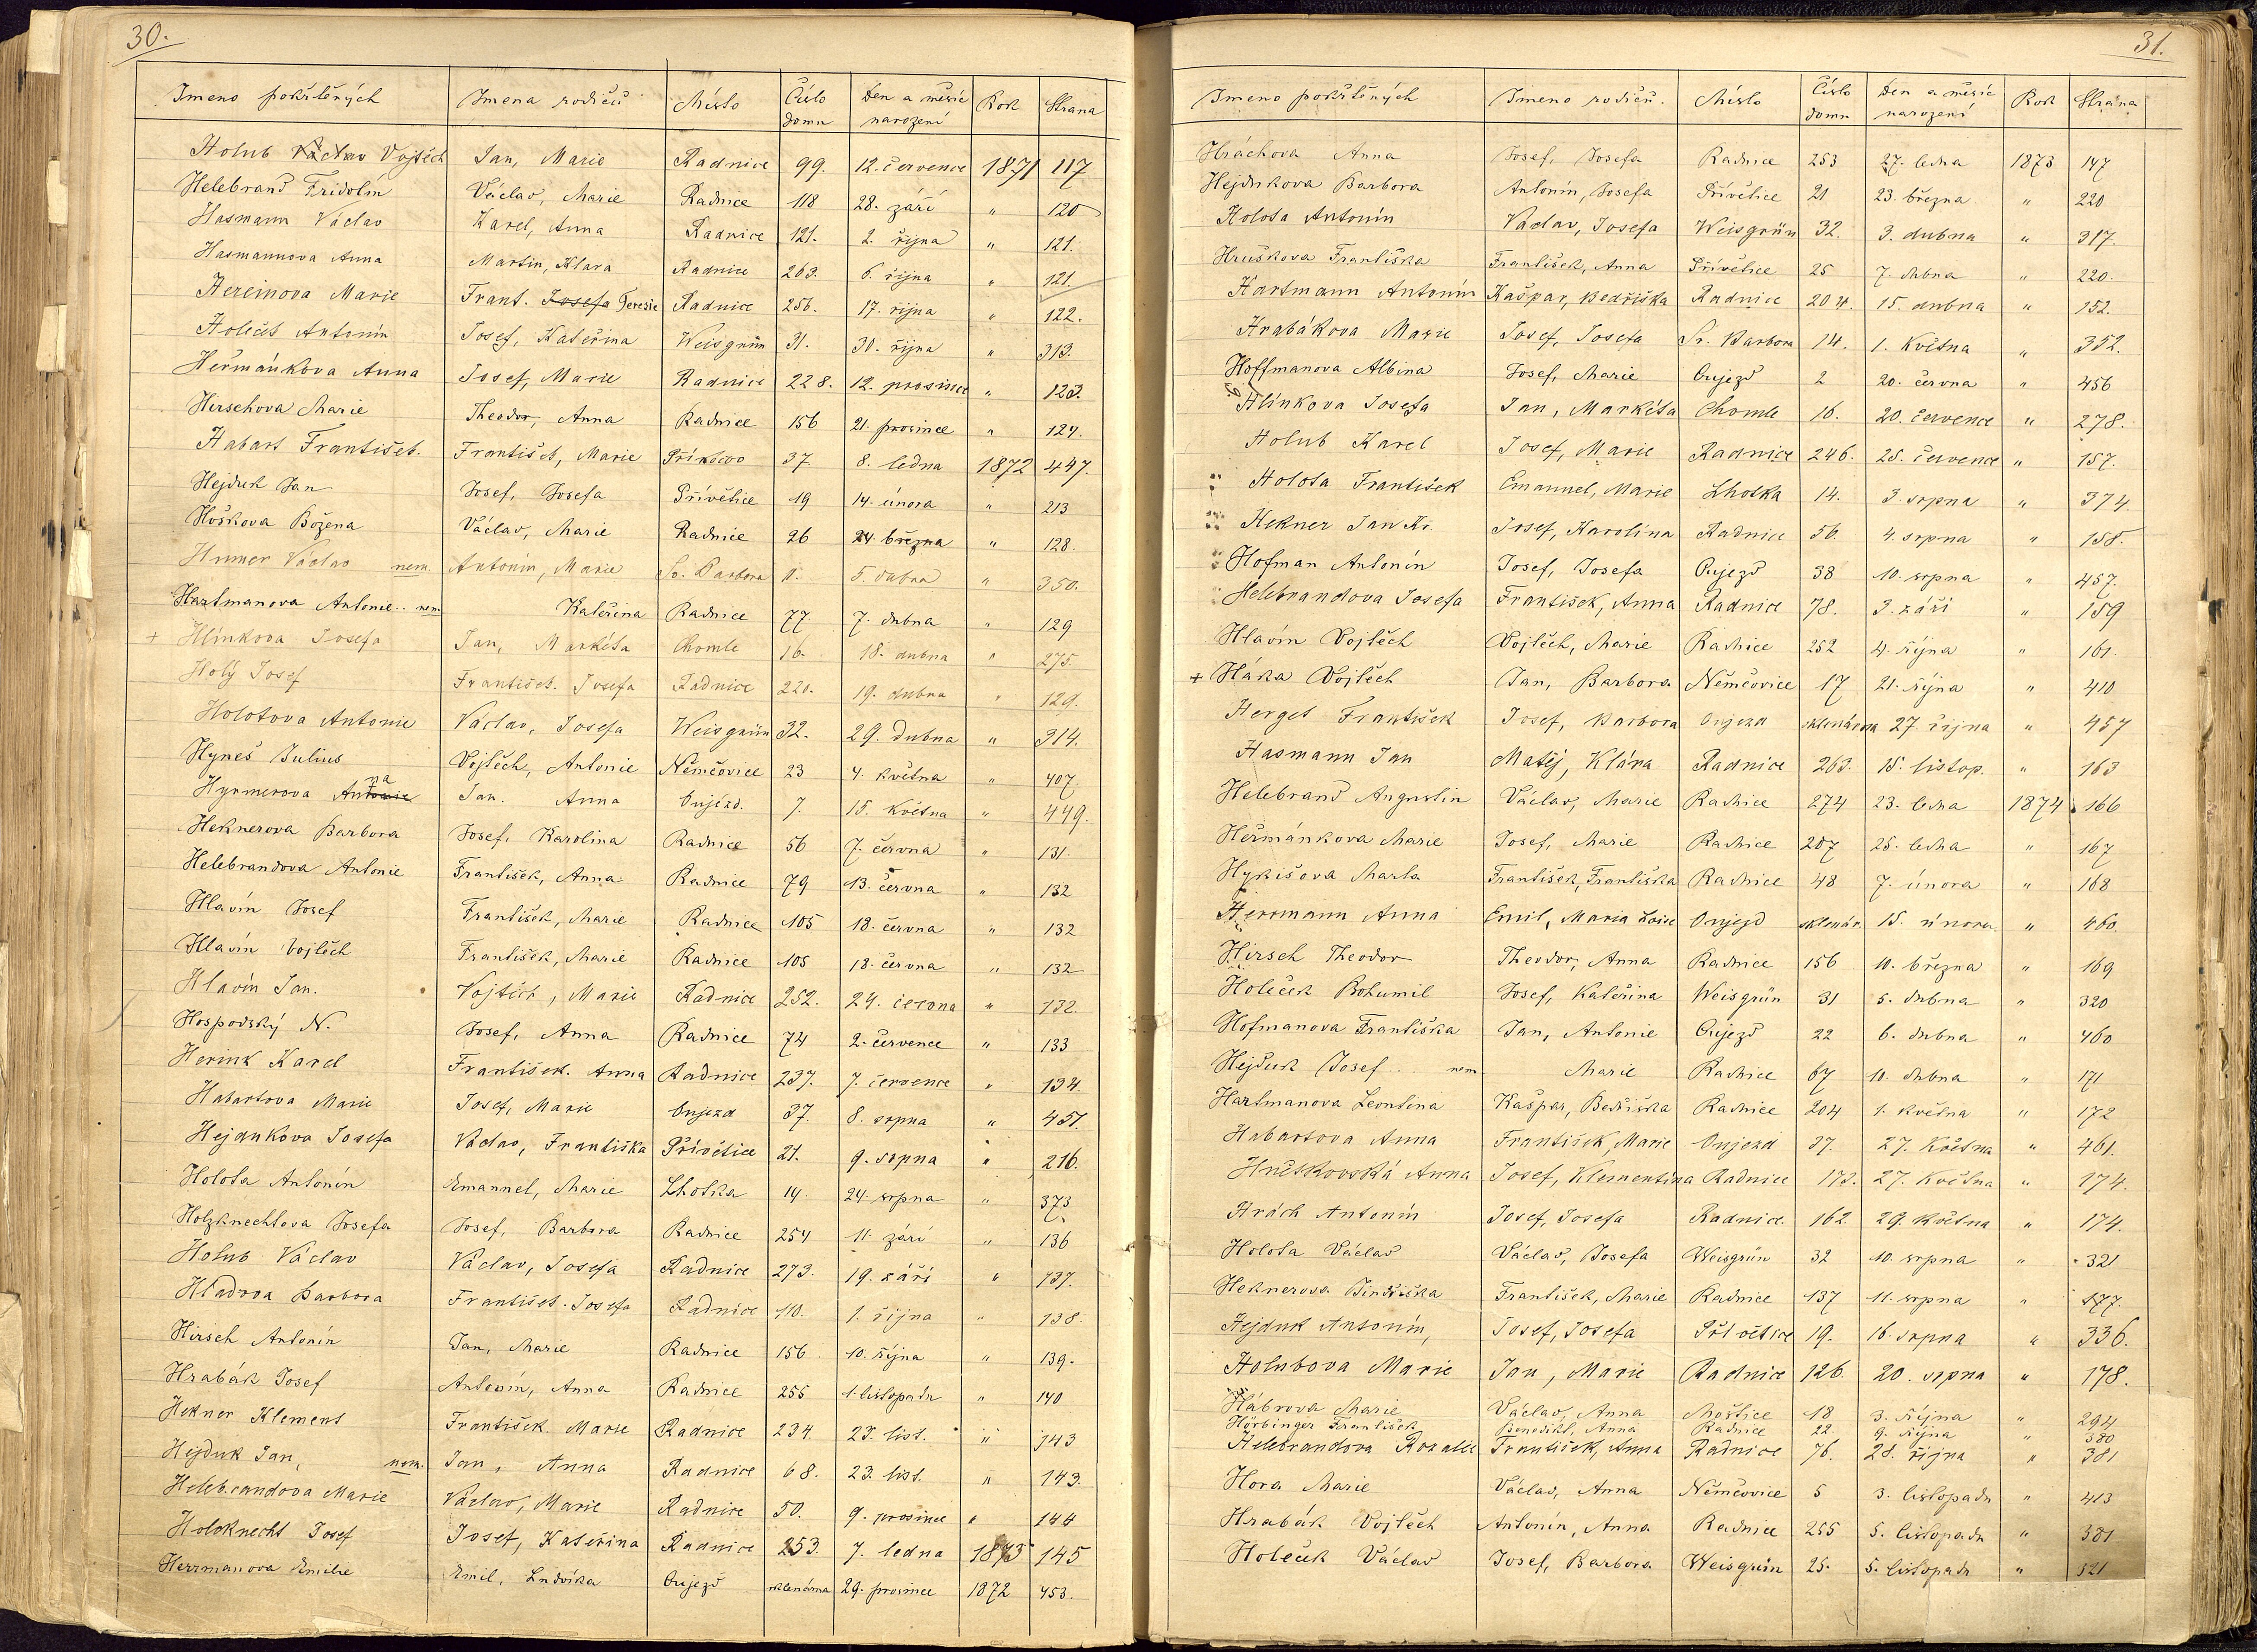 30.
Jmeno pokřtěných Jmena rodičů Místo Číslo domu Den a měsíc narození Rok Strana
Holub Václav Vojtěch Jan, Marie Radnice 99. 12. července 1871 117
Helebrand Fridolín Václav, Marie Radnice 118 28. září " 120
Hasmann Václav Karel, Anna Radnice 121. 2. října " 121.
Hasmannova Anna Martin, Klara Radnice 263. 6. října " 121.
Hereinova Marie Frant. Josefa Teresie Radnice 256. 17. října " 122.
Holeček Antonín Josef, Kateřina Weisgrün 31. 30. října " 313.
Heřmánkova Anna Josef, Marie Radnice 228. 12. prosince " 123.
Hirschova Marie Theodor, Anna Radnice 156 21. prosince " 124.
Habart František. František, Marie 37. 8. ledna 1872 447.
Hejduk Jan Josef, Josefa Přívětice 19 14. února " 213
Hoškova Božena Václav, Marie Radnice 26 24. března " 128.
Humer Václav nem. Antonín, Marie Sv. Barbora 11. 5. dubna " 350.
Hartmanova Antonie.. nem Kateřina Radnice 77 7. dubna " 129
+ Hlínkova Josefa Jan, Markéta Chomle 16. 18. dubna " 275.
Holý Josef František. Josefa Radnice 220. 19. dubna " 129.
Holotova Antonie Václav, Josefa Weisgrün 32. 29. dubna " 314.
Hyneš Julius Vojtěch, Antonie Němčovice 23 4. května " 407.
Hynmerova Antonie na Jan. Anna Oujezd. 7. 15. května " 449.
Heknerova Barbora Josef, Karolina Radnice 56 7. června " 131.
Helebrandova Antonie František, Anna Radnice 79 13. června " 132
Hlavín Josef František, Marie Radnice 105 18. června " 132
Hlavín Vojtěch František, Marie Radnice 105 18. června " 132
Hlavín Jan. Vojtěch, Marie Radnice 252. 24. června " 132.
Hospodský N. Josef, Anna Radnice 74 2. července " 133
Herink Karel František. Anna Radnice 237. 7. července " 134.
Habartova Marie Josef, Marie Oujezd 37. 8. srpna " 451.
Hejdukova Josefa Václav, Františka Přívětice 21. 9. srpna " 216.
Holota Antonín Emanuel, Marie Lhotka 14. 24. srpna " 373
Holzknechtova Josefa Josef, Barbora Radnice 254 11. září " 136
Holub Václav Václav, Josefa Radnice 273. 19. září " 137.
Hladova Barbora František. Josefa Radnice 110. 1. října " 138.
Hirsch Antonín Jan, Marie Radnice 156 10. října " 139.
Hrabák Josef Antonín, Anna Radnice 255 1. listopadu " 140
Hekner Klement František. Marie Radnice 234. 23. list. " 143
Hejduk Jan, nem. Jan, Anna Radnice 68. 23. list. " 143.
Helebrandova Marie Václav, Marie Radnice 50. 9. prosince " 144
Holzknecht Josef Josef, Kateřina Radnice 253. 7. ledna 1873 145
Herrmanova Emilie Emil, Ludvika Oujezd sklenárna 29. prosince 1872 453.
31.
Jmeno pokřtěných Jmeno rodičů. Místo Číslo domu Den a měsíc narození Rok Strana
Hráchova Anna Josef, Josefa Radnice 253 27. ledna 1873 147
Hejdukova Barbora Antonín, Josefa Přívětice 21 23. března " 220
Holota Antonín Václav, Josefa Weisgrün 32. 3. dubna " 317.
Hruškova Františka František, Anna Přívětice 25 7. dubna " 220.
Hartmann Antonín Kašpar, Bedřiška Radnice 204. 15. dubna " 152.
Hrabákova Marie Josef, Josefa Sv. Barbora 14. 1. května " 352.
Hoffmanova Albina Josef, Marie Oujezd 2 20. června " 456
Hlínkova Josefa Jan, Markéta Chomle 16. 20. července " 278.
Holub Karel Josef, Marie Radnice 246. 25. července " 157.
Holota František Emanuel, Marie Lhotka 14. 3. srpna " 374
Hekner Jan Kř. Josef, Karolina Radnice 56. 4. srpna " 158.
Hofman Antonín Josef, Josefa Oujezd 38 10. srpna " 457.
Helebrandova Josefa František, Anna Radnice 78. 3. září " 159
Hlavín Vojtěch Vojtěch, Marie Radnice 252 4. října " 161.
+ Háka Vojtěch Jan, Barbora Němčovice 17 21. října " 410
Herget František Josef, Barbora Oujezd sklenárna 27. října " 457
Hasmann Jan Matěj, Klára Radnice 263. 15. listop. " 163
Helebrand Augustin Václav, Marie Radnice 274 23. ledna 1874 166
Heřmánkova Marie Josef, Marie Radnice 207 25. ledna " 167
Hykišova Marta František, Františka Radnice 48 7. února " 168
Herrmann Anna Emil, Maria Loise Oujezd sklenár. 15. února " 460.
Hirsch Theodor Theodor, Anna Radnice 156 10. března " 169
Holeček Bohumil Josef, Kateřina Weisgrün 31 5. dubna " 320
Hofmanova Františka Jan, Antonie Oujezd 22 6. dubna " 460
Hejduk Josef... nem. Marie Radnice 67 10. dubna " 171
Hartmanova Leontina Kašpar, Bedřiška Radnice 204 1. května " 172
Habartova Anna František, Marie Oujezd 37. 27. května " 461.
Anna Josef, Klementina Radnice 173. 27. května " 174.
Hrách Antonín Josef, Josefa Radnice. 162. 29. května " 174.
Holota Václav Václav, Josefa Weisgrün 32 10. srpna " 321
Heknerova Jindřiška František, Marie Radnice 137 11. srpna " 177.
Hejduk Antonín, Josef, Josefa Přívětice 19. 16. srpna " 336.
Holubova Marie Jan, Marie Radnice 126. 20. srpna " 178.
Hábrova Marie Václav, Anna Moštice 18 3. října " 294
Hörbinger František Benedikt, Anna Radnice 22. 9. října " 380
Helebrandova Rozalie František, Anna Radnice 76. 28. října " 381
Hora Marie Václav, Anna Němčovice 5 3. listopadu " 413
Hrabák Vojtěch Antonín, Anna Radnice 255 5. listopadu " 381
Holeček Václav Josef, Barbora Weisgrün 25. 5. listopadu " 321